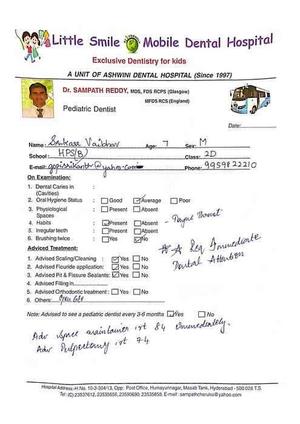 Little Smile Mobile Dental Hospital
Exclusive Dentistry for kids
A UNIT OF ASHWINI DENTAL HOSPITAL (Since 1997)
Dr. SAMPATH REDDY, MDS, FDS RCPS (Glasgow)
MFDS RCS (England)
Pediatric Dentist
Date:
Name: Vaibhav Age: 7 Sex: M
School: HPS(B) Class: 2D
E-mail: Phone: 9959822210
On Examination:
1. Dental Caries in (Cavities)
2. Oral Hygiene Status : Good Average Poor
3. Physiological Spaces : Present Absent
4. Habits : Present Absent - Tongue Thrust
5. Irregular teeth : Present Absent
6. Brushing twice : Yes No
A Req Immediate Dental Attention
Adviced Treatment:
1. Advised Scaling/Cleaning : Yes No
2. Advised Flouride application: Yes No
3. Advised Pit & Fissure Sealants: Yes No
4. Advised Filling in
5. Advised Orthodontic treatment : Yes No
6. Others:
Note: Advised to see a pediatric dentist every 3-6 months Yes No
Adv space maintainer irt 84 immediately.
Adv Pulpectomy irt 74
Hospital Address: H.No. 10-2-304/13, Opp: Post Office, Humayunnagar, Masab Tank, Hyderabad - 500 028 T.S.